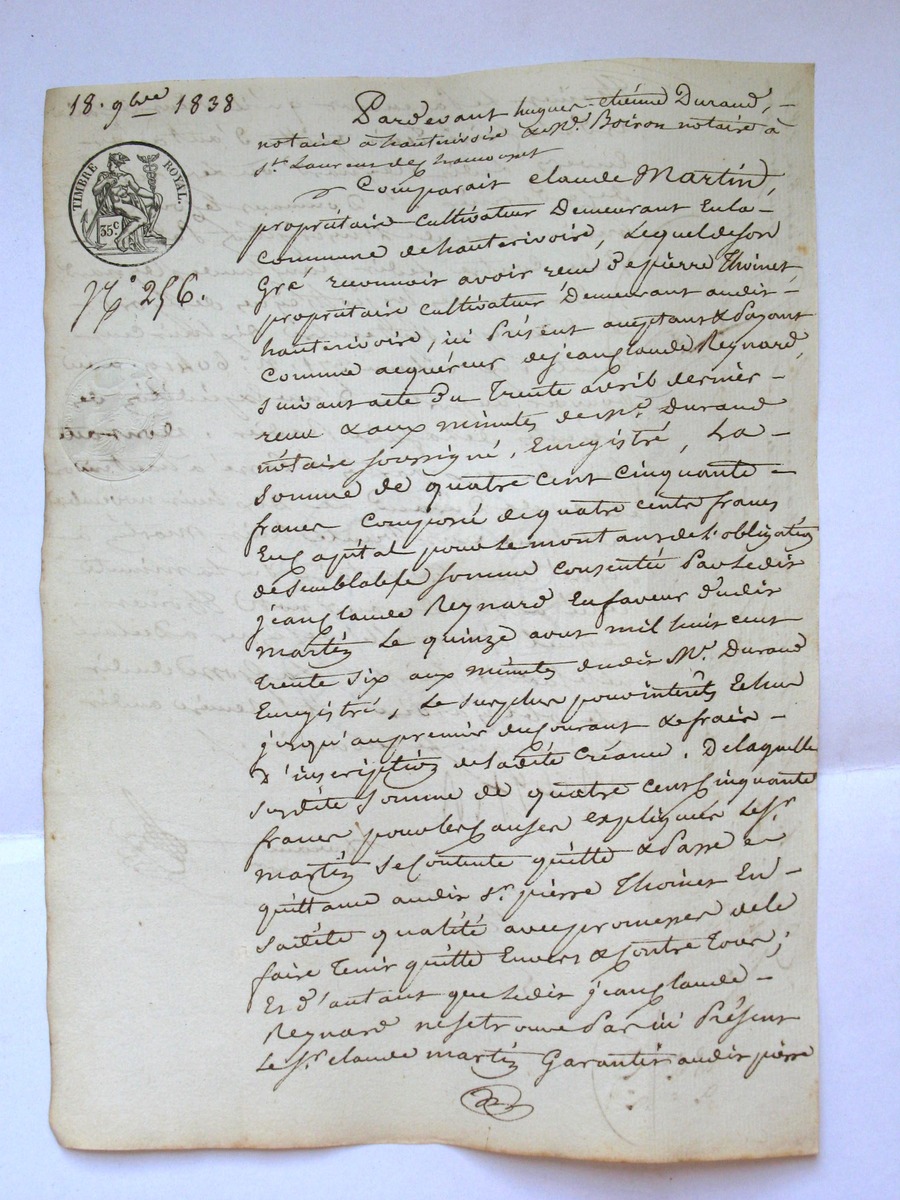 18. 9bre 1838
Pardevant hugues-étiénne Durand, -
notaire à hauterivoire & Me. Boiron notaire à
St. Laurent de Chamousset
Comparait claude Martin,
propriétaire cultivateur Demeurant En la -
Commune de hauterivoire, Lequel de son
Gré reconnoit avoir reçu De pierre Thoinet
propriétaire cultivateur Demeurant audit -
hauterivoire, ici Présent acceptant & Payant
Comme acquéreur de jean Claude Reynard,
suivant acte Du Trente avril dernier -
reçu & aux minutes de Me. Durand
nótaire soussigné, Enregistré, La -
somme de quatre cent cinquante -
francs Composé de quatre cents francs
En Capital pour le montant de l'obligation
de semblable somme consentie Par Ledit
jean Claude Reynard En faveur Dudit
martin Le quinze aout mil huit cent
trente six aux minutes dudit Me. Durand
Enregistré, Le surplus pour intérêts Echus
jusqu'au premier du Courant & frais -
D'inscription de Ladite Créance. De laquelle
susdite somme de quatre cent Cinquante
francs pour les Causes expliquées Le Sr.
martin se Contente quitte & Passe
quittance audit Sr. pierre Thoinet En -
sadite qualité avec promesse de le
faire Tenir quitte Envers & Contre Tous;
Et D'autant que Ledit jean Claude -
Reynard ne se trouve Par ici Présent
Le Sr. claude martin Garantit audit pierre
TIMBRE ROYAL.
35c.
No 256.